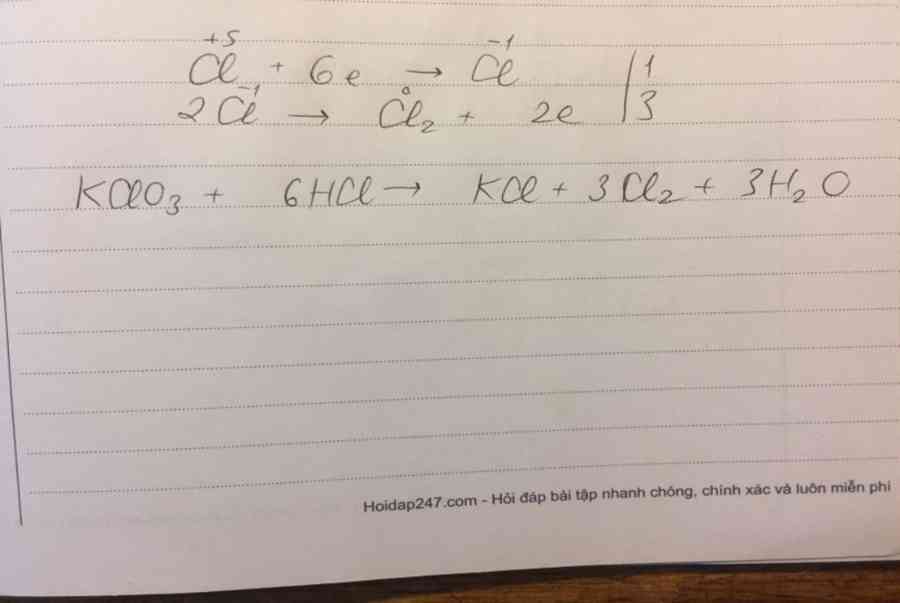 +5 -1
Cl + 6e → Cl | 1
-1 0
2Cl → Cl₂ + 2e | 3
KClO₃ + 6HCl → KCl + 3Cl₂ + 3H₂O
Hoidap247.com - Hỏi đáp bài tập nhanh chóng, chính xác và luôn miễn phí